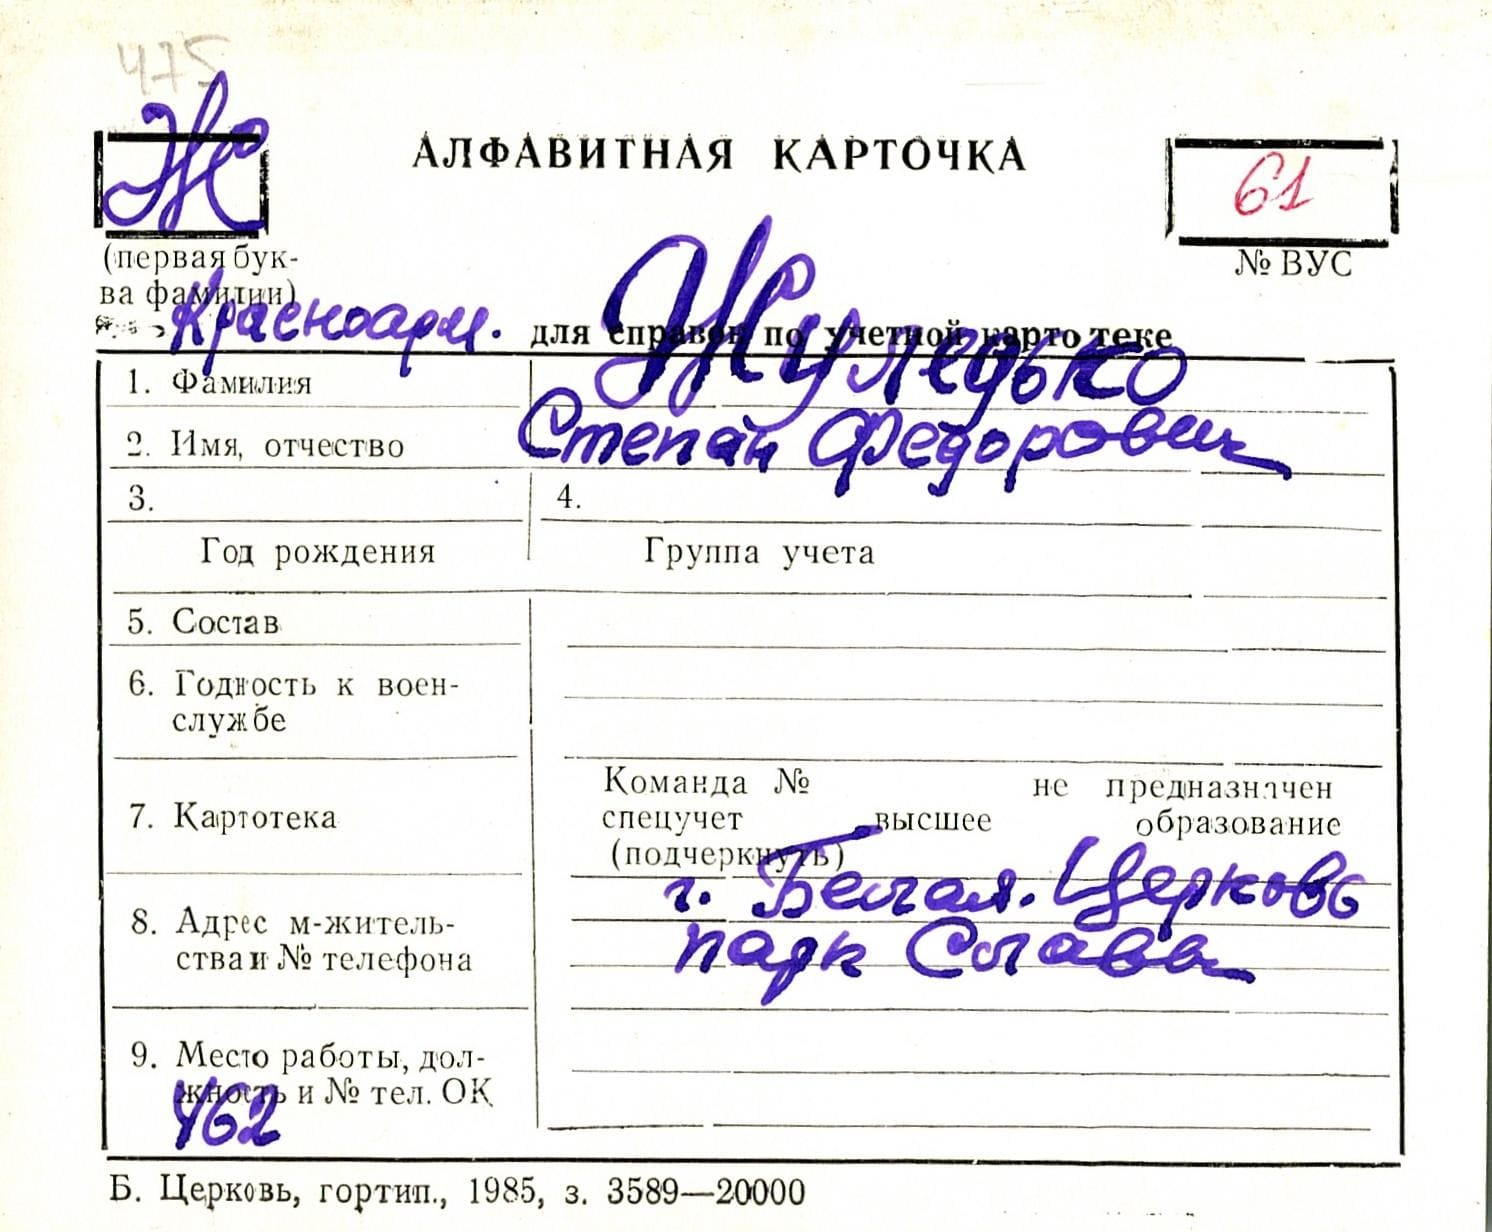 475
Ж
АЛФАВИТНАЯ КАРТОЧКА
61
(первая бук-
ва фамилии)
№ ВУС
Красноарм.
для справок по учетной картотеке
1. Фамилия Жуледько
2. Имя, отчество Степан Федорович
3. 4.
Год рождения Группа учета
5. Состав
6. Годность к воен-
службе
Команда № не предназначен
7. Картотека спецучет высшее образование
(подчеркнуть)
г. Белая. Церковь
8. Адрес м-житель-
ства и № телефона
парк Славы
9. Место работы, дол-
жность и № тел. ОК
462
Б. Церковь, гортип., 1985, з. 3589—20000